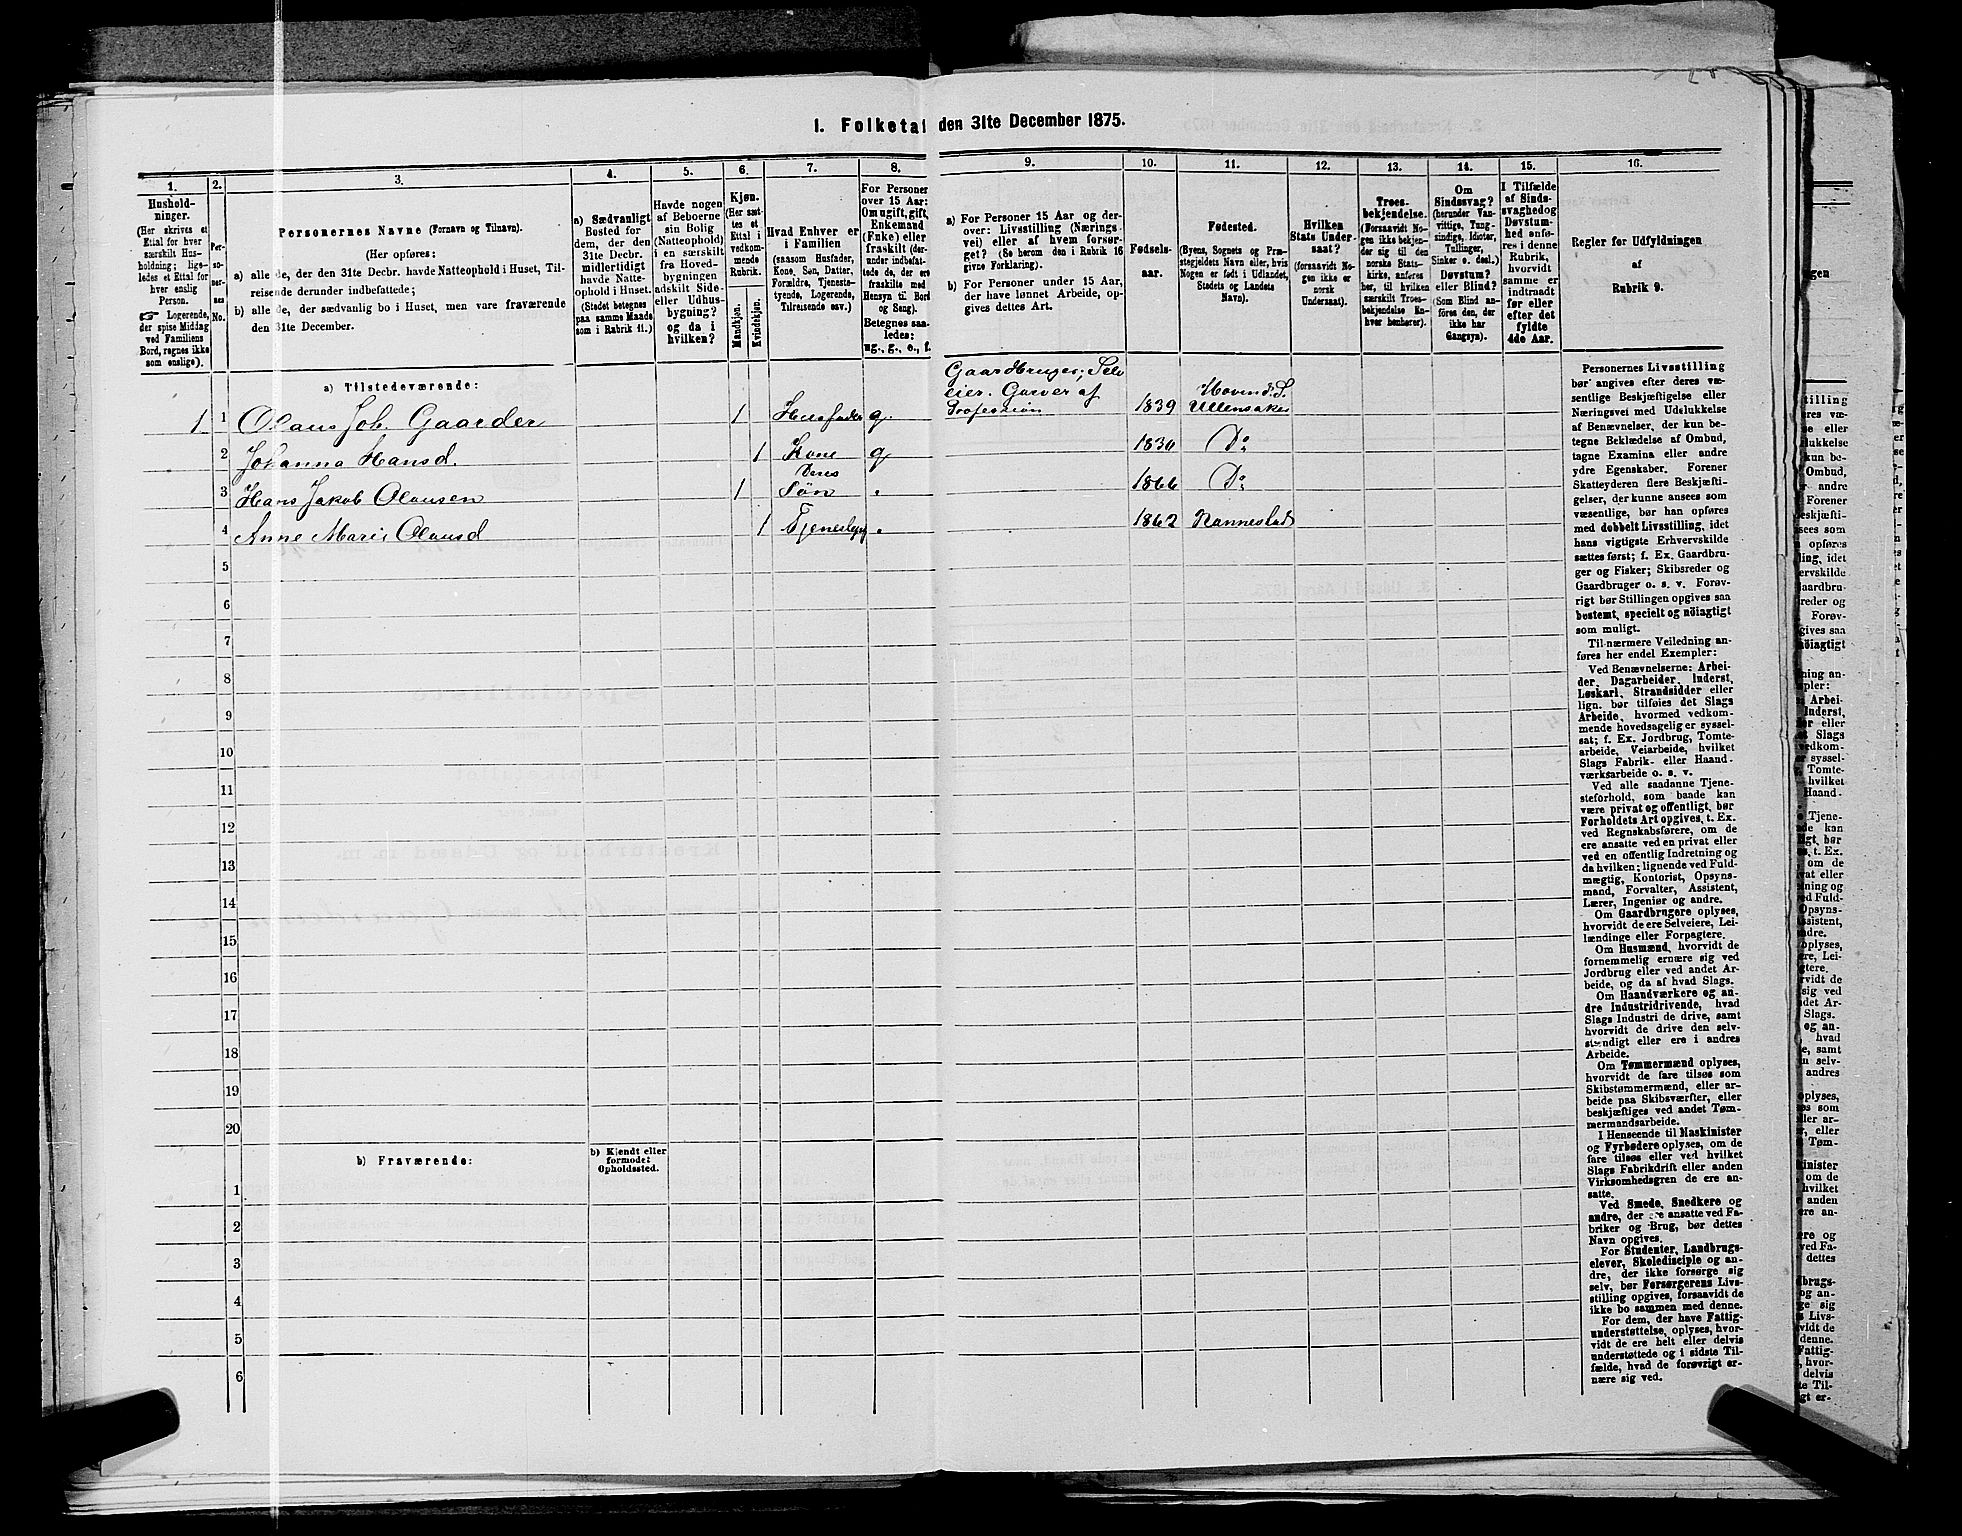 1. Folketal den 31te December 1875.
1.
2.
3.
4.
5.
6.
7.
8.
9.
10.
11.
12.
13.
14.
15.
16.
Hushold-
ninger.
(Her skrives et
Ettal for hver
særskilt Hus-
holdning; lige-
ledes et Ettal for
hver enslig
Person.
☞ Logerende,
der spise Middag
ved Familiens
Bord, regnes ikke
som enslige).
Per-
so-
ner-
nes
No.
Personernes Navne (Fornavn og Tilnavn).
(Her opføres:
a) alle de, der den 31te Decbr. havde Natteophold i Huset, Til-
reisende derunder indbefattede;
b) alle de, der sædvanlig bo i Huset, men vare fraværende
den 31te December.
a) Sædvanligt
Bosted for
dem, der den
31te Decbr.
midlertidigt
havde Natte-
ophold i Huset.
(Stedet betegnes
paa samme Maade
som i Rubrik 11.)
Havde nogen
af Beboerne
sin Bolig
(Natteophold)
i en særskilt
fra Hoved-
bygningen
adskilt Side-
eller Udhus-
bygning?
og da i
hvilken?
Kjøn.
(Her sæt-
tes et
Ettal i
vedkom-
mende
Rubrik.
Mandkjøn.
Kvindekjøn.
Hvad Enhver er
i Familien
(saasom Husfader,
Kone, Søn, Datter,
Forældre, Tjeneste-
tyende, Logerende,
Tilreisende osv.)
For Personer
over 15 Aar:
Om ugift, gift,
Enkemand
(Enke) eller
fraskilt (der-
under indbefat-
tede de, der ere
fraskilte med
Hensyn til Bord
og Seng).
Betegnes saa-
ledes:
ug., g., e., f.
a) For Personer 15 Aar og der-
over: Livsstilling (Nærings-
vei) eller af hvem forsør-
get? (Se herom den i Rubrik 16
givne Forklaring).
b) For Personer under 15 Aar,
der have lønnet Arbeide, op-
gives dettes Art.
Fødsels-
aar.
Fødested.
(Byens, Sognets og Præ-
stegjeldets Navn eller, hvis
Nogen er født i Udlandet,
Stedets og Landets
Navn).
Hvilken
Stats Under-
saat?
(forsaavidt No-
gen ikke er
norsk
Undersaat).
Troes-
bekjendelse.
(Forsaavidt No-
gen ikke bekjen-
der sig til den
norske Stats-
kirke, anføres
her, til hvilken
særskilt Troes-
bekjendelse En-
hver henhører).
Om
Sindssvag?
(herunder Van-
vittige, Tung-
sindige, Idioter,
Tullinger,
Sinker o. desl.)
Døvstum?
eller Blind?
(Som Blind an-
føres den, der
ikke har
Gangsyn).
I Tilfælde
af Sinds-
svaghed og
Døvstum-
hed anfø-
res i denne
Rubrik,
hvorvidt
samme er
indtraadt
før eller
efter det
fyldte
4de Aar.
Regler for Udfyldningen
af
Rubrik 9.
a) Tilstedeværende:
1 1 Olaus Joh. Gaarder 1 Husfader g. Gaardbruger; Selv
eier. Garver af
Profession 1839 Hovind S.
Ullensaker
2 Johanna Hansd. 1 Kone g 1830 Do
3 Hans Jakob Olausen 1 Deres
Søn " 1866 Do
4 Anne Marie Olausd 1 " 1862 Nannestad
5
6
7
8
9
10
11
12
13
14
15
16
17
18
19
20
b) Fraværende:
b) Kjendt eller
formodet
Opholdssted.
1
2
3
4
5
6
Personernes Livsstilling
bør angives efter deres væ-
sentlige Beskjæftigelse eller
Næringsvei med Udelukkelse
af Benævnelser, der kun be-
tegne Beklædelse af Ombud,
tagne Examina eller andre
ydre Egenskaber. Forener
Skatteyderen flere Beskjæfti-
gelser, der kunne ansees som
væsentlige, bør han opføres
med dobbelt Livsstilling, idet
hans vigtigste Erhvervskilde
sættes først; f. Ex. Gaardbru-
ger og Fisker; Skibsreder og
Gaardbruger o. s. v. Forøv-
rigt bør Stillingen opgives saa
bestemt, specielt og nöiagtigt
som muligt.
Til nærmere Veiledning an-
føres her endel Exempler:
Ved Benævnelserne: Arbei-
der, Dagarbeider, Inderst,
Løskarl, Strandsidder eller
lign. bør tilføies det Slags
Arbeide, hvormed vedkom-
mende hovedsagelig er syssel-
sat; f. Ex. Jordbrug, Tomte-
arbeide, Veiarbeide, hvilket
Slags Fabrik- eller Haand-
værksarbeide o. s. v.
Ved alle saadanne Tjene-
steforhold, som baade kan
være privat og offentligt, bør
Forholdets Art opgives, t. Ex.
ved Regnskabsførere, om de
ere ansatte ved en privat eller
ved en offentlig Indretning og
da hvilken; lignende ved Fuld-
mægtig, Kontorist, Opsyns-
mand, Forvalter, Assistent,
Lærer, Ingeniør og andre.
Om Gaardbrugere oplyses,
hvorvidt de ere Selveiere, Lei-
lændinge eller Forpagtere.
Om Husmænd, hvorvidt de
fornemmelig ernære sig ved
Jordbrug eller ved andet Ar-
beide, og da af hvad Slags.
Om Haandværkere og an-
dre Industridrivende, hvad
Slags Industri de drive, samt
hvorvidt de drive den selv-
stændigt eller ere i andres
Arbeide.
Om Tømmermænd oplyses,
hvorvidt de fare tilsøs som
Skibstømmermænd, eller ar-
beide paa Skibsværfter, eller
beskjæftiges ved andet Tøm-
mermandsarbeide.
I Henseende til Maskinister
og Fyrbødere oplyses, om de
fare tilsøs eller ved hvilket
Slags Fabrikdrift eller anden
Virksomhedsgren de ere an-
satte.
Ved Smede, Snedkere og
andre, der ere ansatte ved Fa-
briker og Brug, bør dettes
Navn opgives.
For Studenter, Landbrugs-
elever, Skoledisciple og an-
dre, der ikke forsørge sig
selv, bør Forsørgerens Livs-
stilling opgives, forsaavidt de
ikke bo sammen med denne.
For dem, der have Fattig-
understøttelse, oplyses, hvor-
vidt de ere helt eller delvis
understøttede og i sidste Til-
fælde, hvad de forøvrigt er-
nære sig ved.